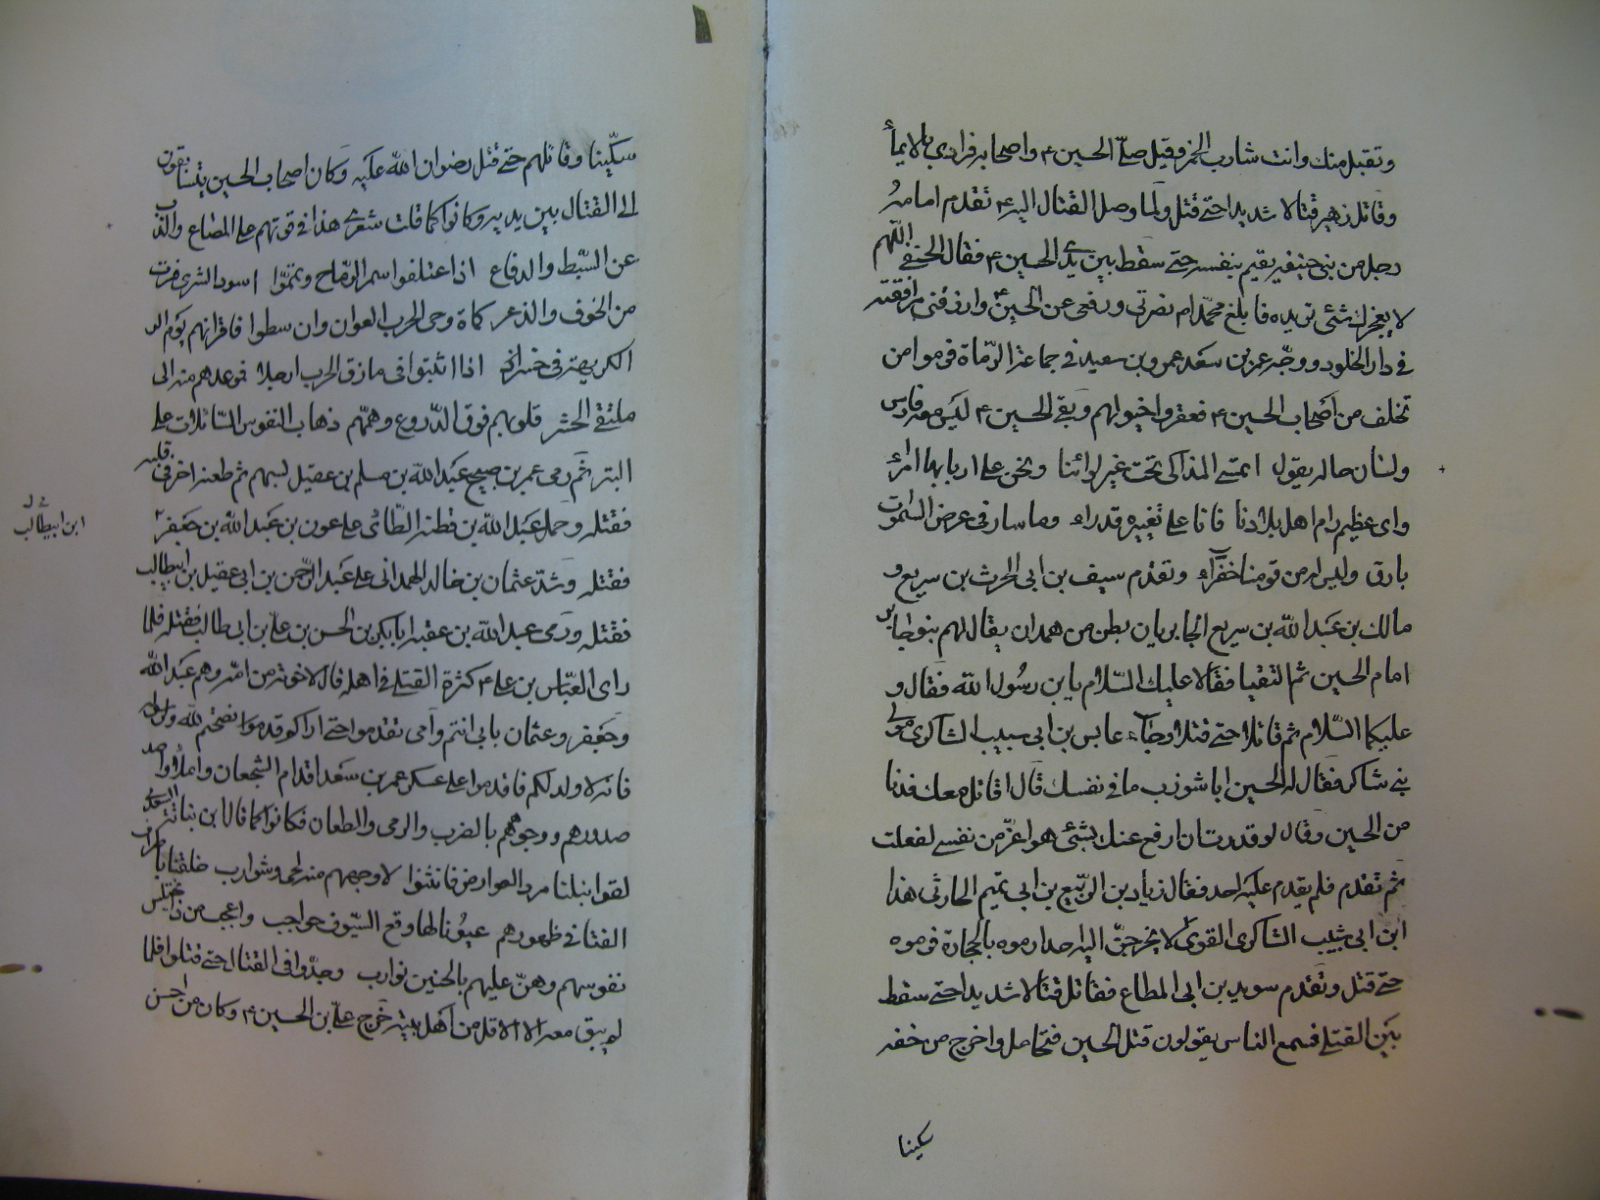 وتقبل منك وانت شارب الخمر وقيل صلّى الحسين ع واصحابه فرادى بالايماء
وقاتل زهير قتالا شديدا حتى قتل ولما وصل القتال اليه ع تقدم امامه
رجل من بنى حنيفه يقيه بنفسه حتى سقط بين يدى الحسين ع فقال الحنفى اللّهم
لا يعجزك شئ تريده فابلغ محمّدا م نصرتى ودفعى عن الحسين ع وارزقنى مرافقته
فى دار الخلود ووجّه عمر بن سعد عمرو بن سعيد فى جماعة الرّماة فرموا من
تخلف من اصحاب الحسين ع فعقروا خيولهم وبقى الحسين ع ليس معه فارس
ولسان حاله يقول ايمسى المذاكى تحت غير لوائنا ونحن على اربابها امراء
واى عظيم رام اهل بلادنا فانا على تغييره قدراء وما سار فى عرض السّموت
بارق وليس له من قومنا خفراء وتقدم سيف بن ابى الحرث بن سريع و
مالك بن عبد اللّه بن سريع الجابريان بطن من همدان يقال لهم بنو جابر
امام الحسين ثم التقيا فقالا عليك السّلام يابن رسول اللّه فقال و
عليكما السّلام ثم قاتلا حتى قتلا وجاء عابس بن ابى شبيب الشاكرى مولى
بنى شاكر فقال له الحسين ابا شوذب ما فى نفسك قال اقاتل معك فدنا
من الحسين وقال لو قدرت ان ارفع عنك بشئ هو اعزّ من نفسى لفعلت
ثم تقدم فلم يقدم عليه احد فقال زياد بن الرّبيع بن ابى تميم الحارثى هذا
ابن ابى شبيب الشاكرى القوى لا يخرجنّ اليه احد ارموه بالحجارة فرموه
حتى قتل وتقدم سويد بن ابى المطاع فقاتل قتالا شديدا حتى سقط
بين القتلى فسمع الناس يقولون قتل الحسين فتحامل واخرج من خفه
سكينا
سكّينا وقاتلهم حتى قتل رضوان اللّه عليه وكان اصحاب الحسين يتسابقون
الى القتال بين يديه وكانوا كما قلت شعرى هذا فى قوتهم على المصاع والذب
عن السّبط والدفاع اذا اعتلفوا سمر الرّماح ويمّموا اسود الشرى فرت
من الخوف والذعر كماة رحى الحرب العوان وان سطوا فاقرانهم يوم الـ
الكريهة فى خسر اذا اثبتوا فى مازق الحرب ارجلا فموعدهم منه الى
ملتقى الحشر قلوبهم فوق الدّروع وهمّهم ذهاب النفوس السّائلات على
البتر ثم رمى عمر بن صبيح عبد اللّه بن مسلم بن عقيل بسهم ثم طعنه اخر فى قلبه
فقتله وحمل عبد اللّه بن قطنة الطّائى على عون بن عبد اللّه بن جعفر
فقتله وشدّ عثمان بن خالد الهمدانى على عبد الرّحمن بن ابى عقيل بن ابيطالب
فقتله ورمى عبد اللّه بن عقبه ابا بكر بن الحسن بن على بن ابى طالب فقتله فلما
راى العبّاس بن على ع كثرة القتلى فى اهله قال لاخوته من امّه وهم عبد اللّه
وجعفر وعثمان بابى انتم وامى تقدموا حتى اراكم قد مو نصحتم للّه ولرسوله
فانه لا ولد لكم فاقدموا على عسكر عمر بن سعد اقدام الشجعان واملأوا صد
صدورهم ووجوههم بالضرب والرمى والطعان فكانوا كما قال ابن نباتة السعدى
لقوا نبلنا مرد العوارض فانثنوا لاوجههم منه لحى وشوارب خلقنا باطراف
القنا فى ظهورهم عيونا لها وقع السّيوف حواجب واعجب من ذا تختلس
نفوسهم وهنّ عليهم بالحنين نوادب وجدّوا فى القتال حتى قتلوا فلما
لم يبق معه الا الاقل من اهل بيته خرج على بن الحسين ع وكان من احسن
ابن ابيطالب